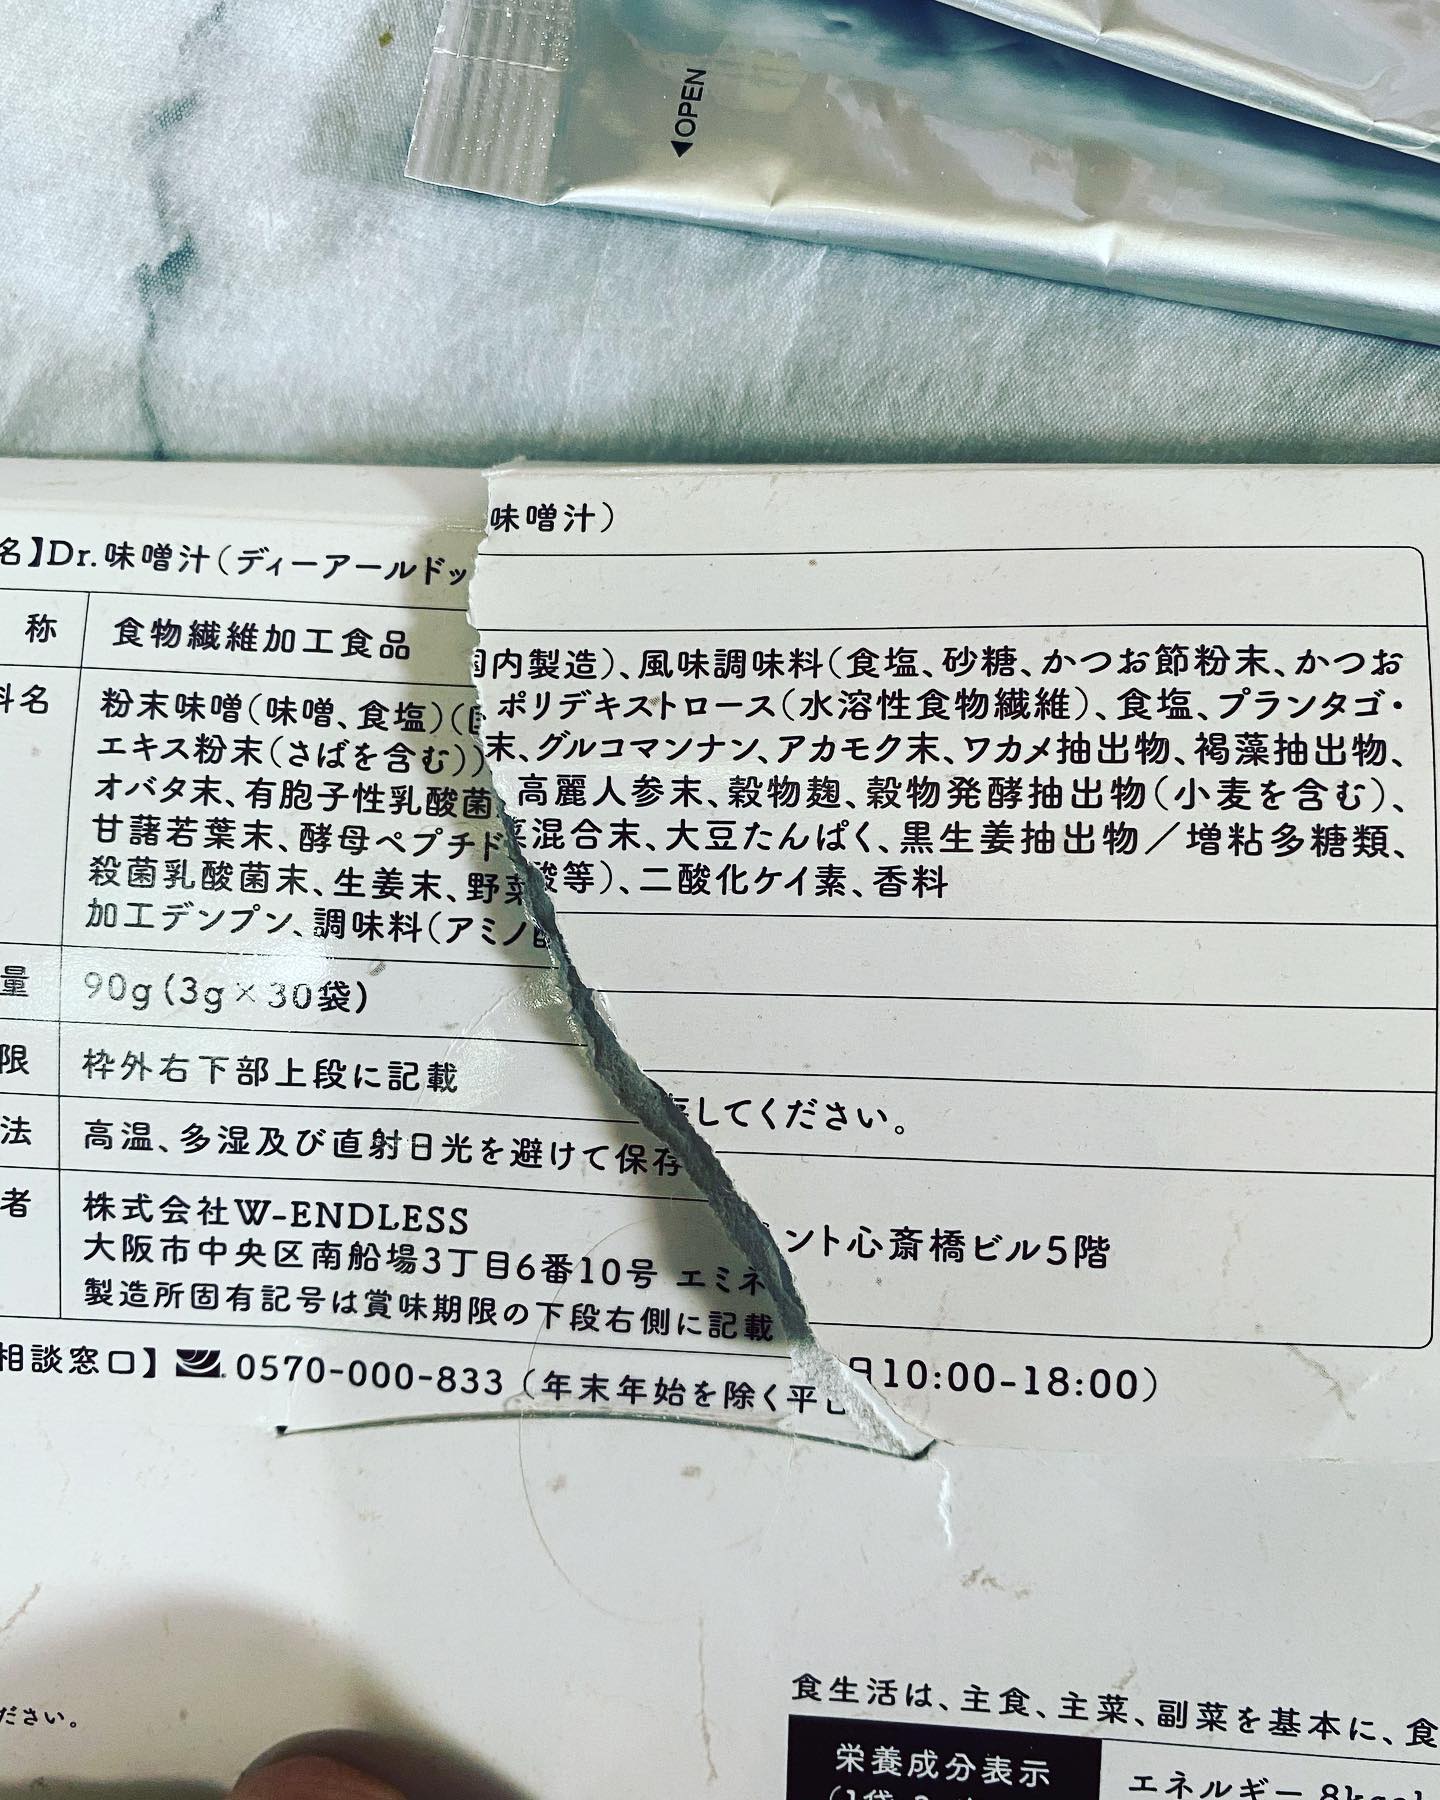 名】Dr.味噌汁（ディーアールドッ味噌汁）
称 食物繊維加工食品
料名 粉末味噌（味噌、食塩）（国内製造）、風味調味料（食塩、砂糖、かつお節粉末、かつお
エキス粉末（さばを含む））ポリデキストロース（水溶性食物繊維）、食塩、プランタゴ・
オバタ末、有胞子性乳酸菌末、グルコマンナン、アカモク末、ワカメ抽出物、褐藻抽出物、
甘藷若葉末、酵母ペプチド高麗人参末、穀物麹、穀物発酵抽出物（小麦を含む）、
殺菌乳酸菌末、生姜末、野菜混合末、大豆たんぱく、黒生姜抽出物／増粘多糖類、
加工デンプン、調味料（アミノ酸等）、二酸化ケイ素、香料
量 90g（3g×30袋）
限 枠外右下部上段に記載
法 高温、多湿及び直射日光を避けて保存してください。
者 株式会社W-ENDLESS
大阪市中央区南船場3丁目6番10号 エミネント心斎橋ビル5階
製造所固有記号は賞味期限の下段右側に記載
相談窓口】0570-000-833（年末年始を除く平日10:00-18:00）
ださい。
食生活は、主食、主菜、副菜を基本に、食
栄養成分表示
エネルギー 8kcal
◀OPEN